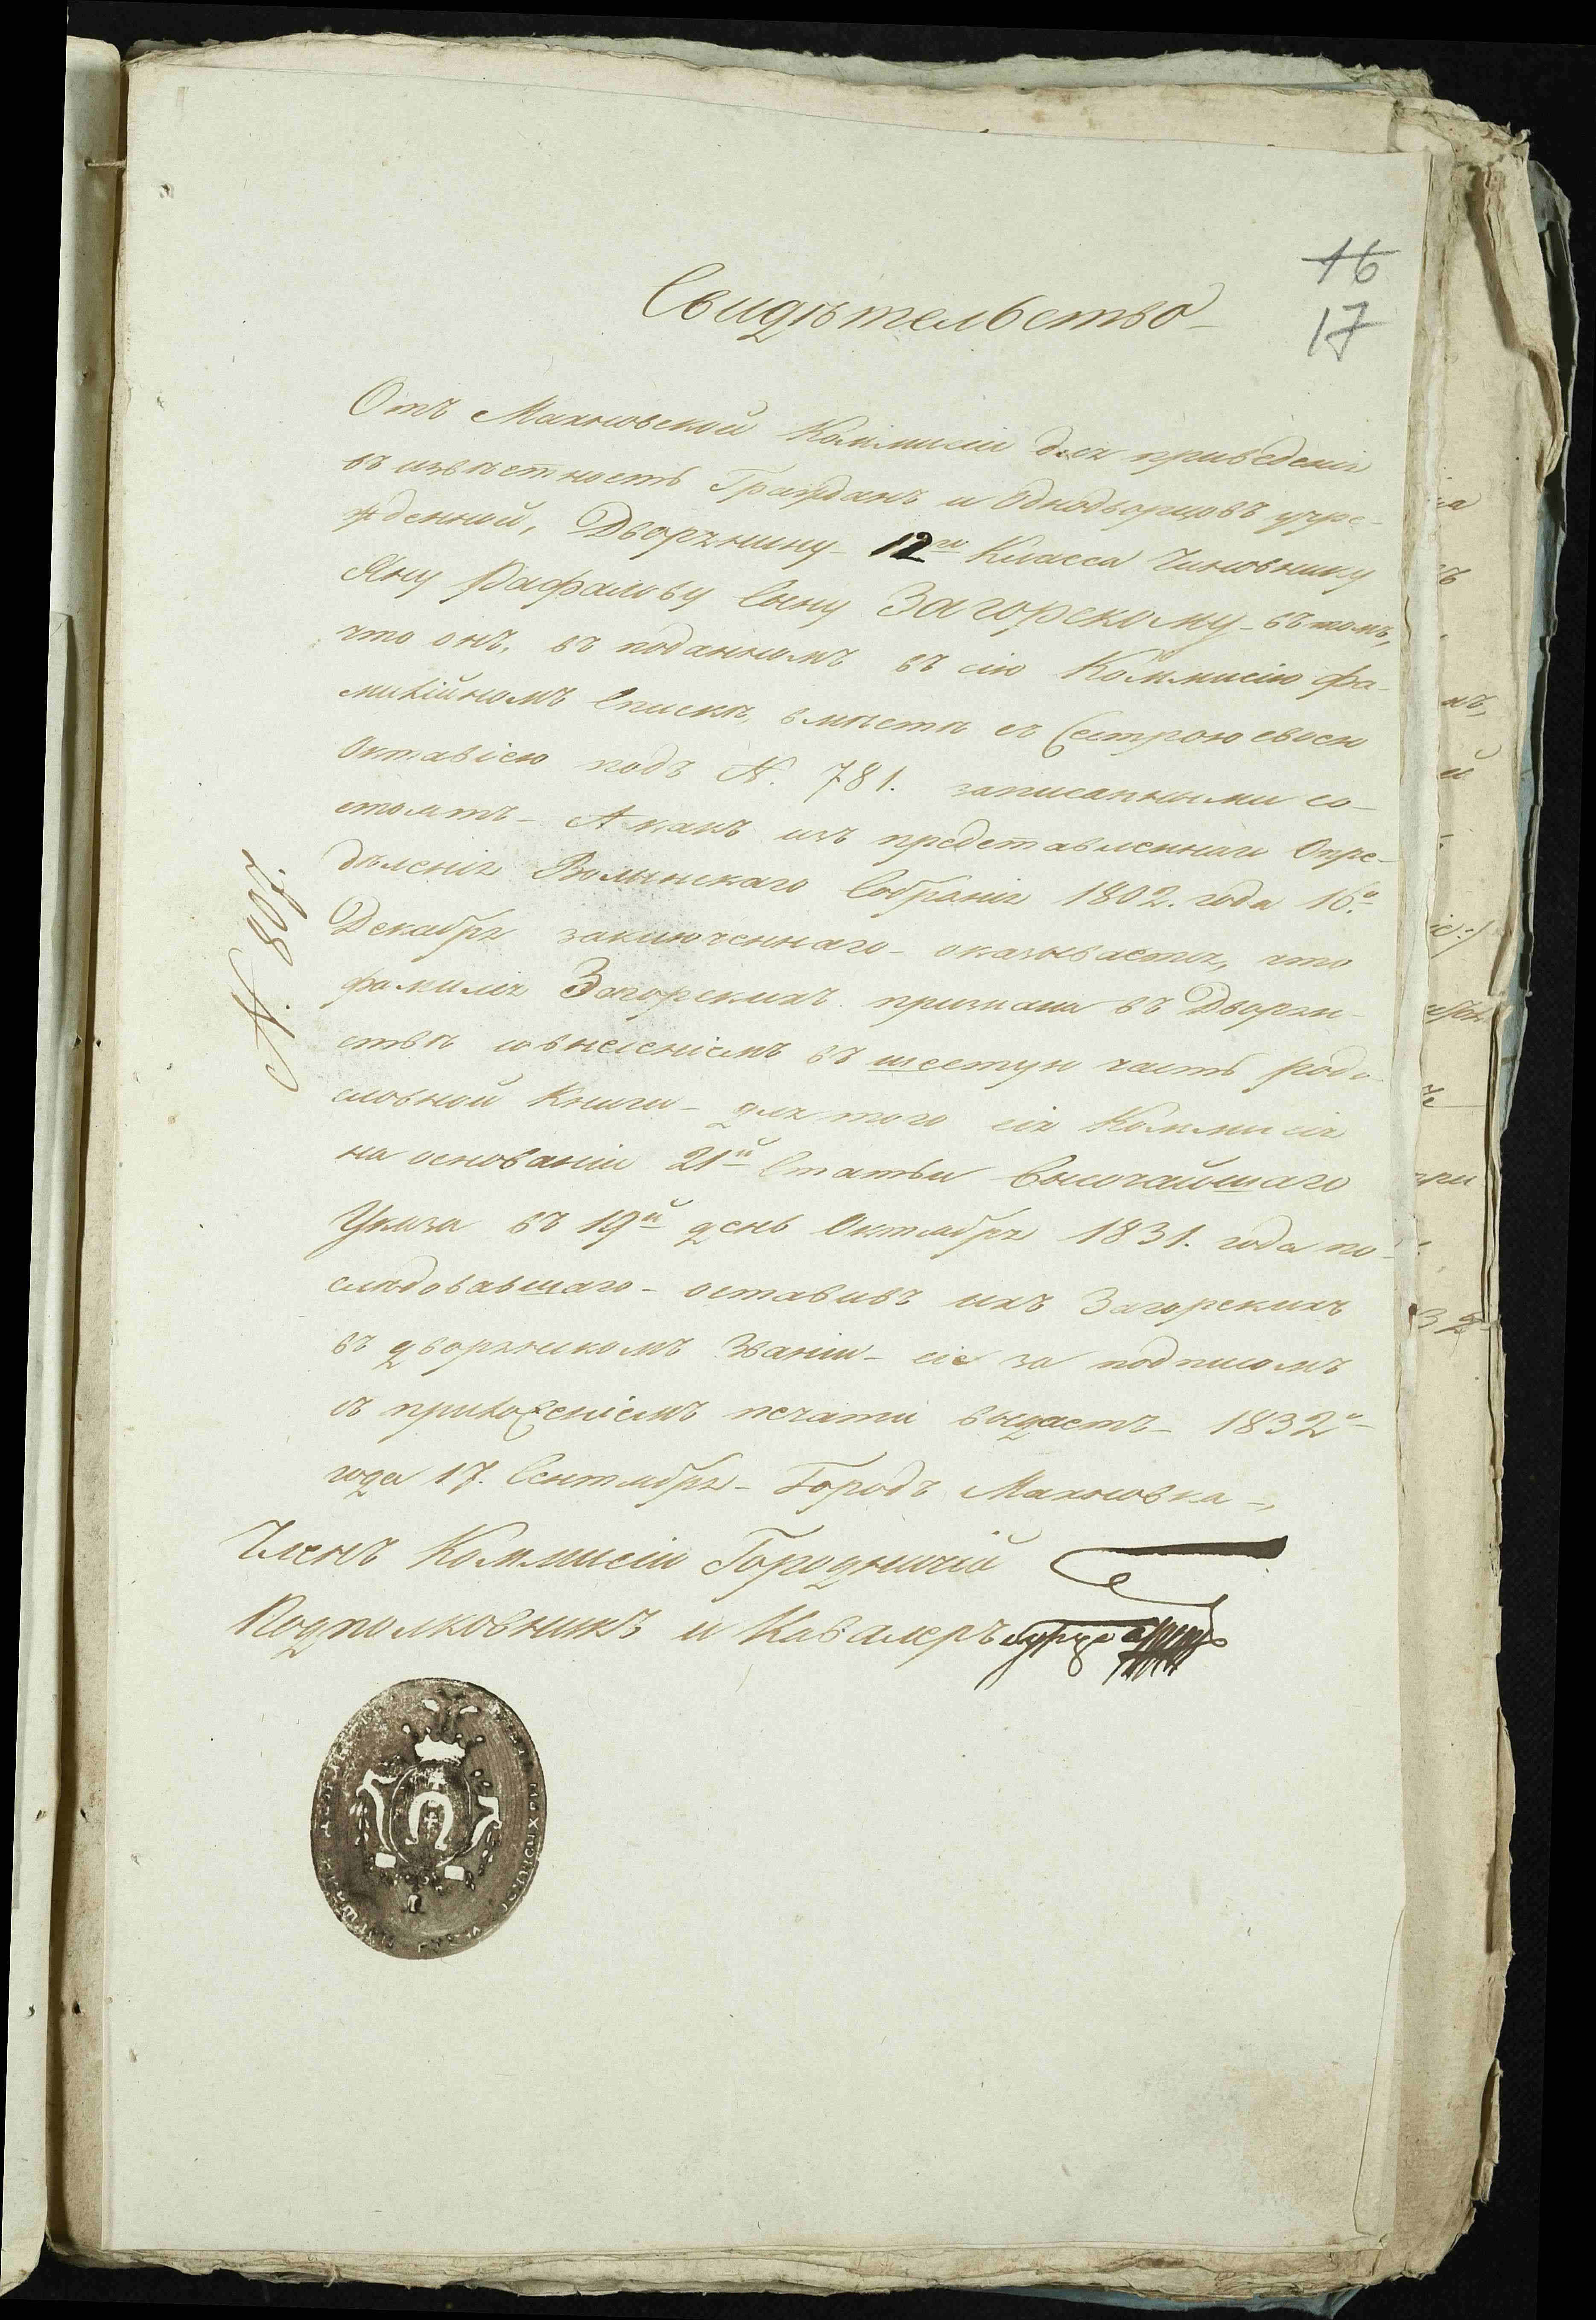 16
17
Свидѣтельство
Отъ Махновской Коммисіи для приведенія
въ извѣстность Гражданъ и Однодворцовъ учре-
жденной, Дворянину 12го Класса Чиновнику
Яну Рафалову Сыну Загорскому - въ томъ,
что онъ, въ поданномъ въ сію Коммисію фа-
милійномъ Спискѣ, вмѣстѣ съ Сестрою своею
Октавіею подъ N. 781. записанными со-
стоятъ - А какъ изъ представленнаго Опре-
дѣленія Волынскаго Собранія 1802. года 16го
Декабря заключеннаго - оказывается, что
фамилія Загорскихъ признана въ Дворян-
ствѣ совнесеніемъ въ шестую часть родо
словной Книги - для того сія Коммисія
на основаніи 21й Статьи Высочайшаго
Указа въ 19й день Октября 1831. года по-
слѣдовавшаго - оставивъ ихъ Загорскихъ
въ дворянскомъ Званіи - сіе за подписомъ
съ приложеніемъ печати выдаетъ - 1832го
года 17. Сентября - Городъ Махновка -,
N. 807.
Членъ Коммисіи Городничій
Подполковникъ и Кавалеръ